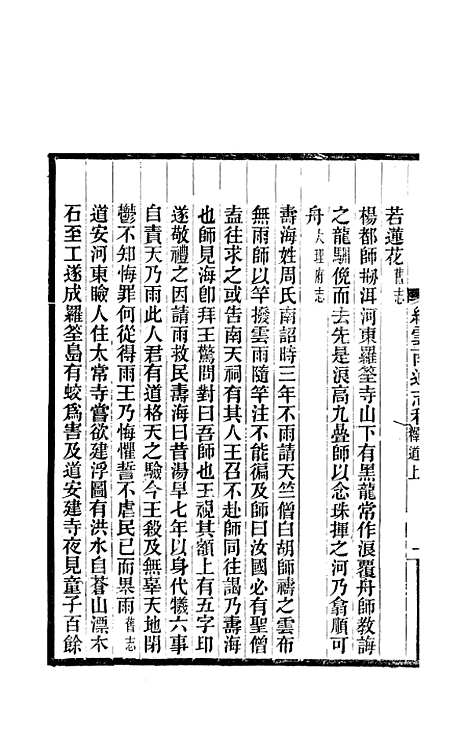 若蓮花舊志
楊都師拗洱河東羅筌寺山下有黑龍常作浪覆舟師教誨
之龍驕傲而去先是浪高九疊師以念珠揮之河乃翕順可
舟大理府志
壽海姓周氏南詔時三年不雨請天竺僧白胡師禱之雲布
無雨師以竿撥雲雨隨竿注不能徧及師曰汝國必有聖僧
盍往求之或告南天祠有其人王召不赴師同往謁乃壽海
也師見海卽拜王驚問對曰吾師也王視其額上有五字印
遂敬禮之因請雨救民壽海曰昔湯旱七年以身代犧六事
自責天乃雨此人君有道格天之驗今王殺及無辜天地閉
鬱不知悔罪何從得雨王乃悔懼誓不虐民已而果雨舊志
道安河東瞼人住太常寺嘗欲建浮圖有洪水自蒼山漂木
石至工遂成羅筌島有蛟爲害及道安建寺夜見童子百餘
雲南通志 釋道上 一